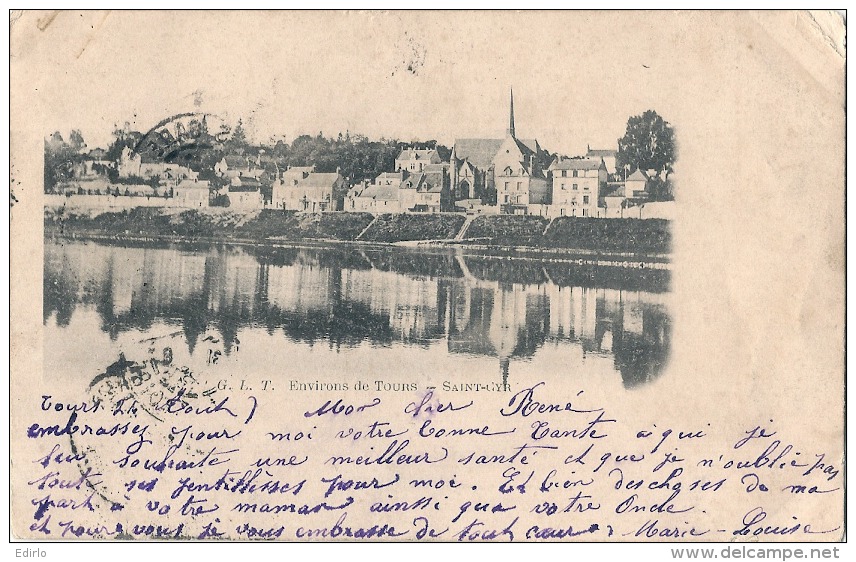 G. L. T. Environs de TOURS – SAINT-CYR
Tours 24 Août Mon cher René
embrassez pour moi votre bonne Tante à qui je
souhaite une meilleur santé et que je n'oublie pas
tout ses gentillesses pour moi. Et bien des choses de ma
part à votre maman ainsi qua votre Oncle.
et pour vous je vous embrasse de tout cœur Marie-Louise
Edirlo
www.delcampe.net